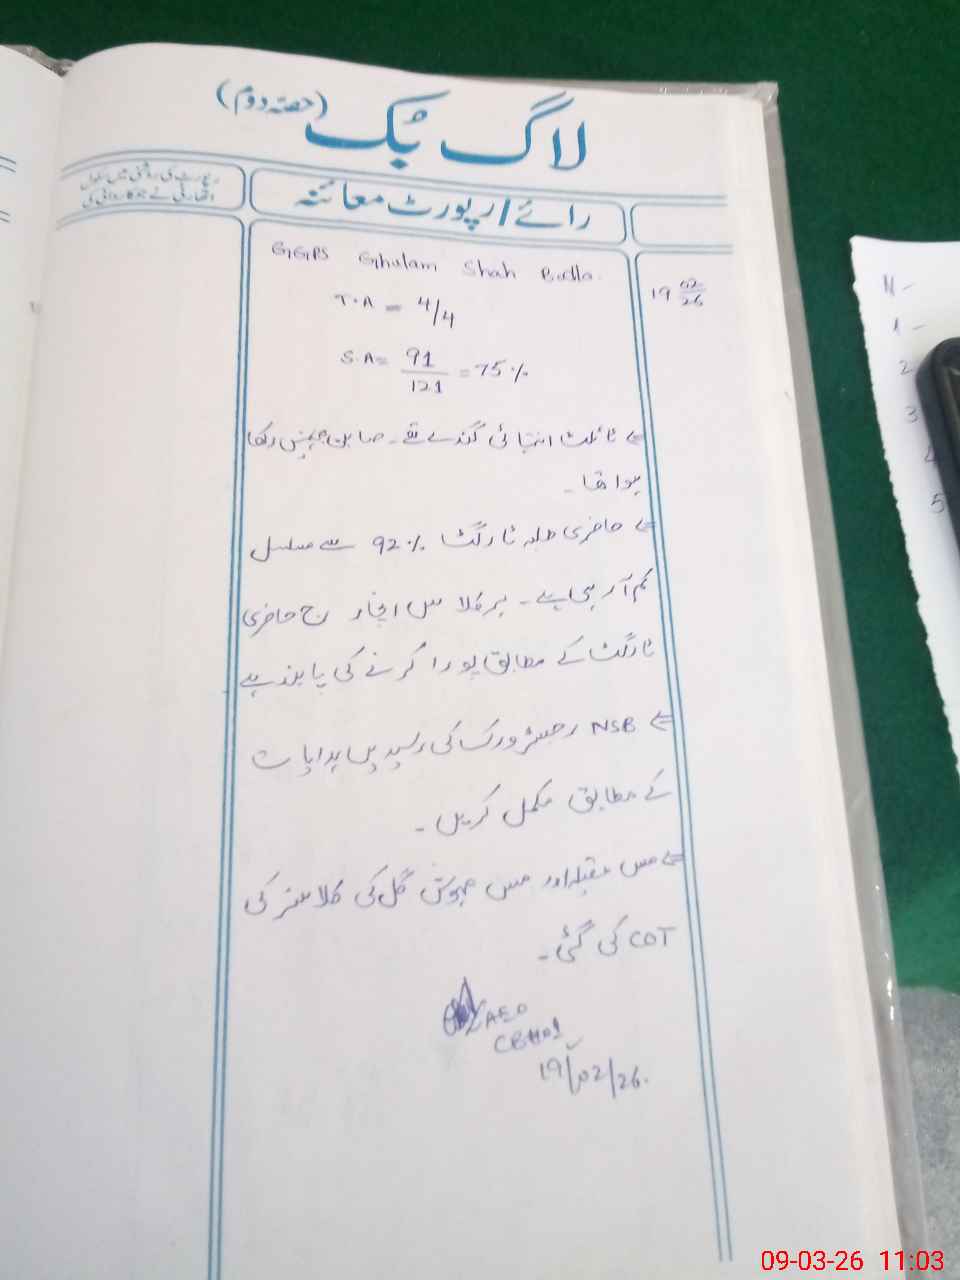 لاگ بک (حصہ دوم)
رائے/رپورٹ معائنہ
رپورٹ کی روشنی میں سکول
اتھارٹی نے جو کاروائی کی
GGPS Ghulam Shah Bodla.
19 02/26
T.A = 4/4
S.A = 91/121 = 75%
⇐ ٹائلٹ انتہائی گندے تھے۔ صابن نہیں رکھا
ہوا تھا۔
⇐ حاضری طلبہ ٹارگٹ 92% سے مسلسل
کم آ رہی ہے۔ ہر کلاس انچارج حاضری
ٹارگٹ کے مطابق پورا کرنے کی پابند ہے
⇐ NSB رجسٹر ورک کی رسیدیں ہدایات
کے مطابق مکمل کریں۔
⇐ مس اور مس مہوش گل کی کلاسز کی
COT کی گئی۔
AEO
19/02/26.
N-
1-
2
3
4
5
09-03-26 11:03